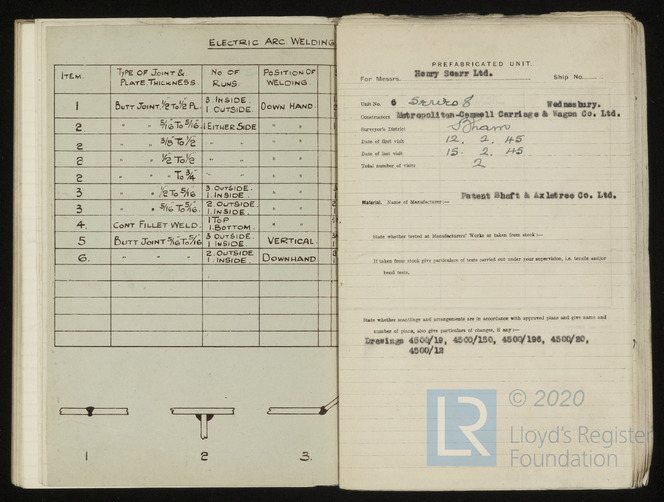 ELECTRIC ARC WELDING
ITEM. TYPE OF JOINT & PLATE THICKNESS. NO OF RUNS. POSITION OF WELDING.
1 BUTT JOINT. 1/2 TO 1/2 PL. 3 INSIDE. 1 OUTSIDE. DOWN HAND.
2 " " 5/16 TO 5/16. 1 EITHER SIDE " "
2 " " 3/8 TO 1/2 " "
2 " " 1/2 TO 1/2 " "
2 " " " TO 3/4 " "
3 " " 1/2 TO 5/16 3 OUTSIDE. 1 INSIDE. " "
3 " " 5/16 TO 5/16. 2 OUTSIDE. 1 INSIDE. " "
4. CONT FILLET WELD. 1 TOP 1 BOTTOM. " "
5 BUTT JOINT 5/16 TO 5/16 3 OUTSIDE 1 INSIDE. VERTICAL.
6. " " " " 2 OUTSIDE 1 INSIDE. DOWNHAND
1 2 3.
PREFABRICATED UNIT.
For Messrs. Henry Scarr Ltd. Ship No.
Unit No. 6 Series 8 Wednesbury.
Constructors Metropolitan-Cammell Carriage & Wagon Co. Ltd.
Surveyor's District B'ham
Date of first visit 12. 2. 45
Date of last visit 15. 2. 45.
Total number of visits 2
Material. Name of Manufacturer:— Patent Shaft & Axletree Co. Ltd.
State whether tested at Manufacturers' Works or taken from stock:—
If taken from stock give particulars of tests carried out under your supervision, i.e. tensile and/or
bend tests.
State whether scantlings and arrangements are in accordance with approved plans and give name and
number of plans, also give particulars of changes, if any:—
Drawings 4500/19, 4500/150, 4500/196, 4500/20,
4500/12
© 2020
LR
Lloyd's Register
Foundation